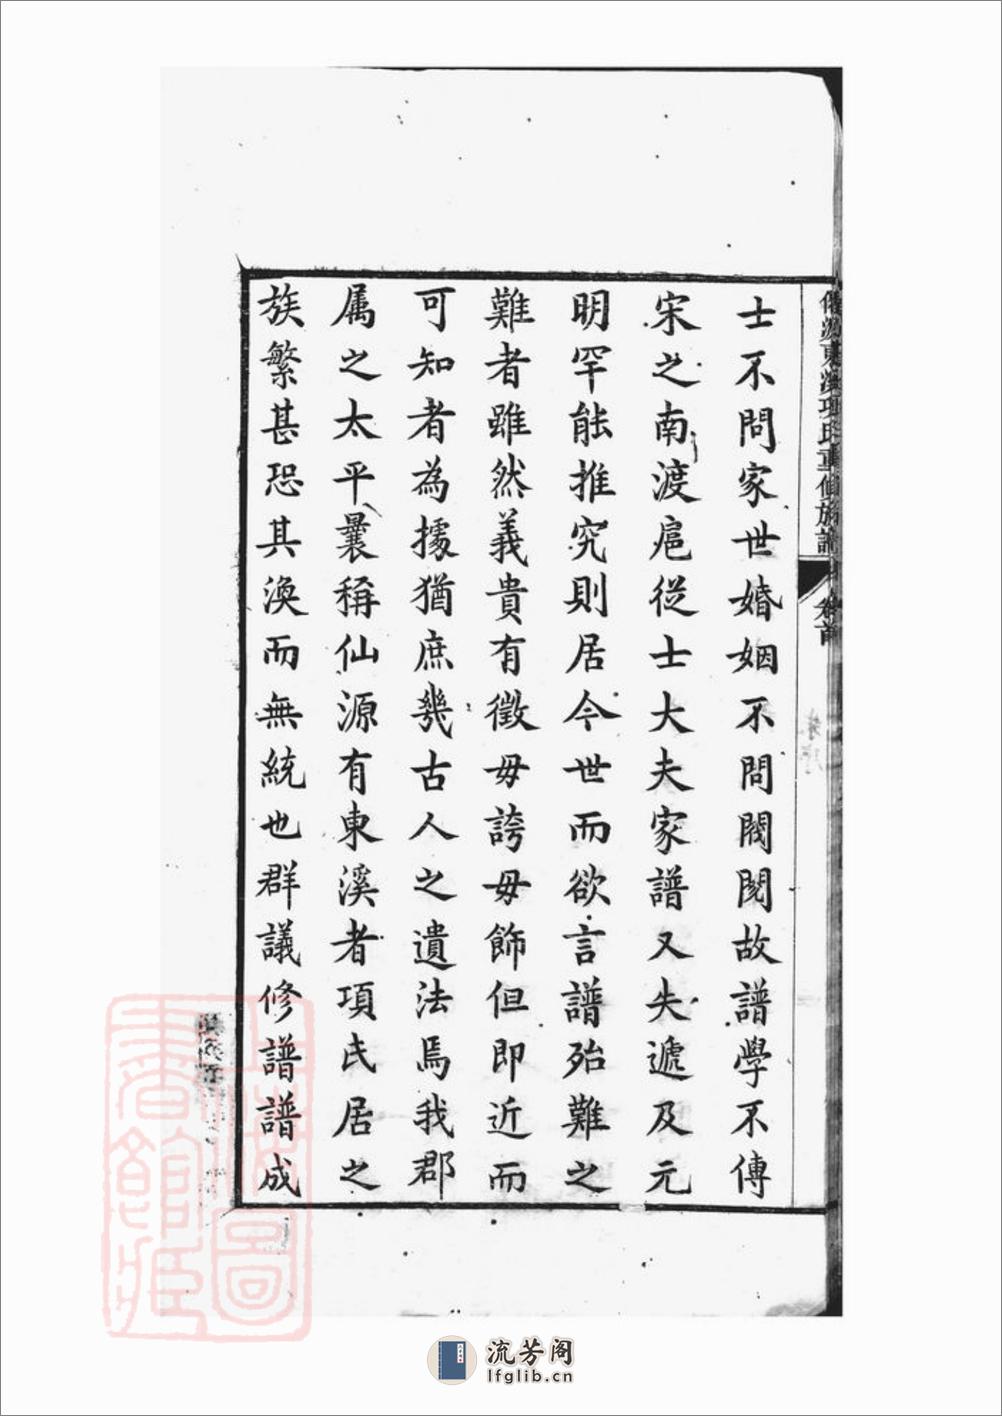 士不問家世婚姻不問閥閱故譜學不傳
宋之南渡扈從士大夫家譜又失遞及元
明罕能推究則居今世而欲言譜殆難之
難者雖然義貴有徵毋誇毋飾但即近而
可知者為據猶庶幾古人之遺法焉我郡
属之太平曩稱仙源有東溪者項氏居之
族繁甚恐其渙而無統也群議修譜譜成
仙源東溪項氏重修族譜
卷首
上海圖書館藏
流芳阁
lfglib.cn